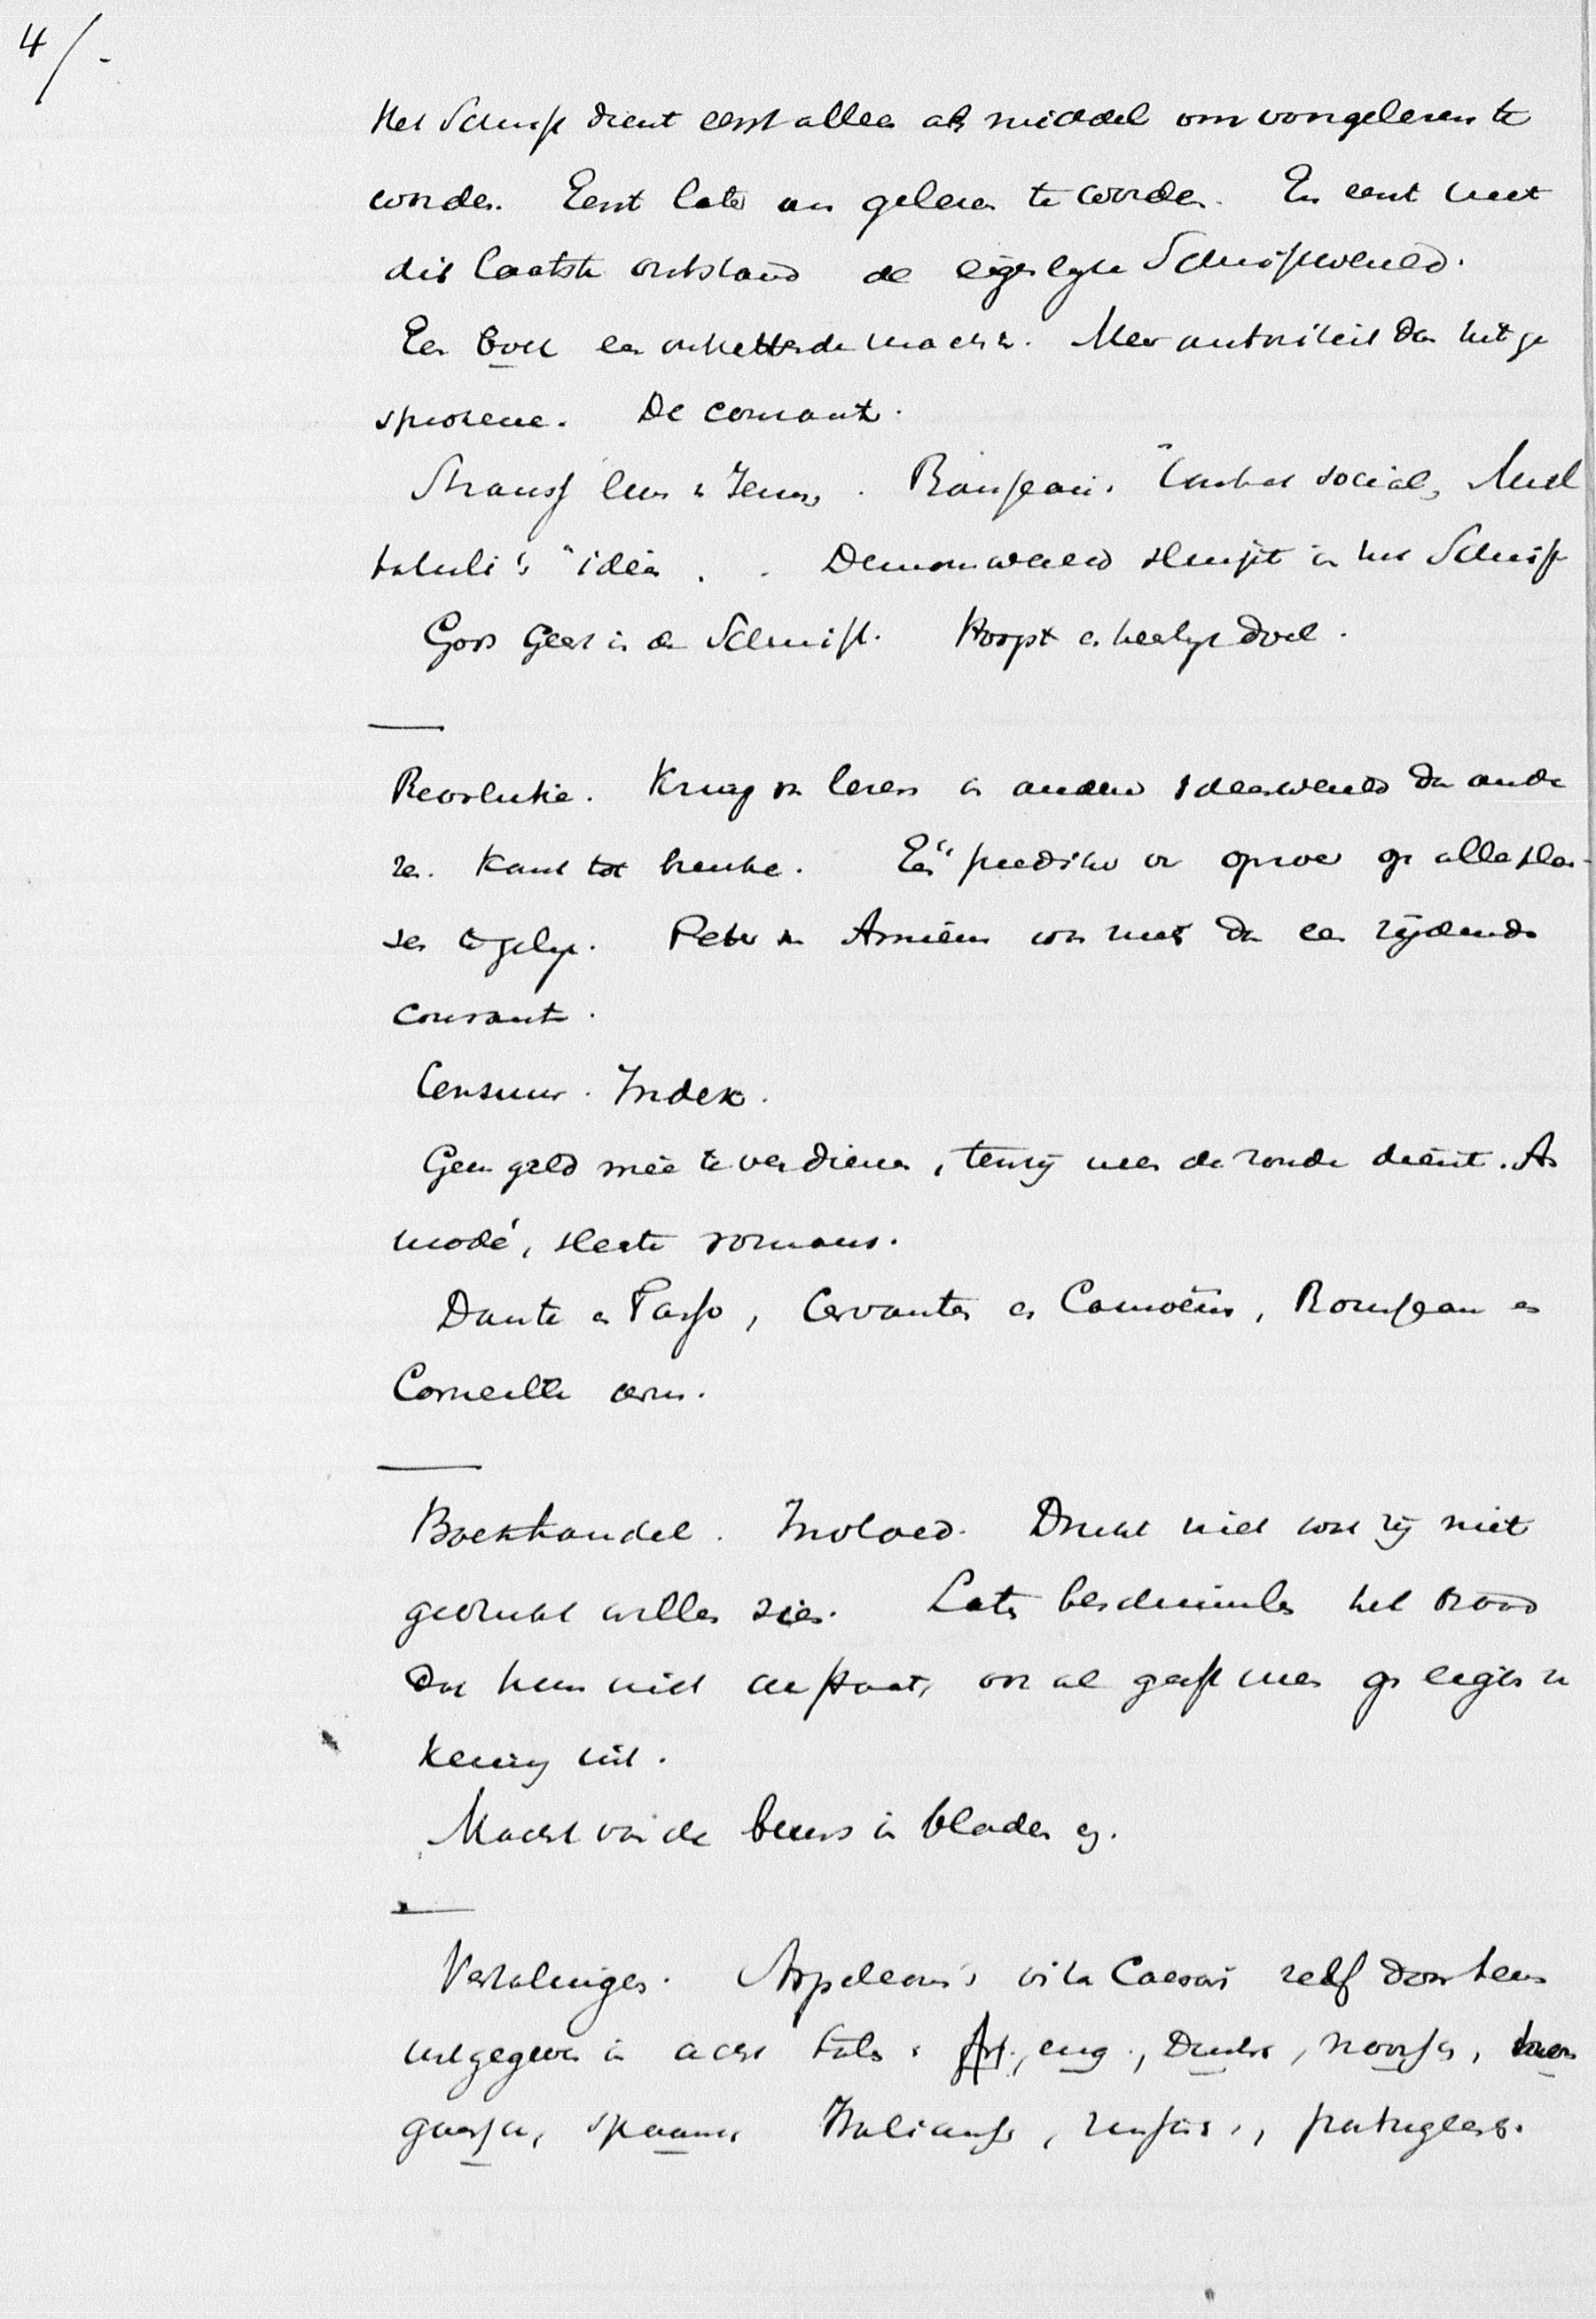 4/-
Het Schrift dient eerst alleen als middel om voorgelezen te
worden. Eerst later om gelezen te worden. En eerst met
dit laatste ontstond de eigenlyke Schriftwereld.
Een boek een ontketende macht. Meer autoriteit dan het ge
sprokene. De courant.
Strauss leven v Jezus. Rousseau. Contrat social, Mul
tatuli's "ideën . . Demonenwereld sluipt in het Schrift
Gods Geest in de Schrift. Hoogst en heerlyk doel.
Revolutie. Kring v lezers in andere Ideenwereld dan ande
re. Kant tot breuke. Een prediker en oproer op alle plaa-
sen tegelyk. Peter v Amiens was niets dan een rijdende
courant.
Censuur. Index.
Geen geld meê te verdienen, tenzij men de zonde dient. A
modé, slechte romans.
Dante en Tasso, Cervantes en Camoëns, Rousseau en
Corneille arm.
Boekhandel. Invloed. Drukt niet wat zij niet
gedrukt willen zien. Laten beschimmelen het brood
dat hun niet aanstaat, ook al geeft men op eigen re
kening uit.
Macht van de beurs in bladen ez.
Vertalingen. Napoleon's vita Caesari zelf door hem
uitgegeven in acht talen: fr., eng., Duits, noorsch, hon
gaarsch, spaansch Italiaansch, russisch, portugeesch.